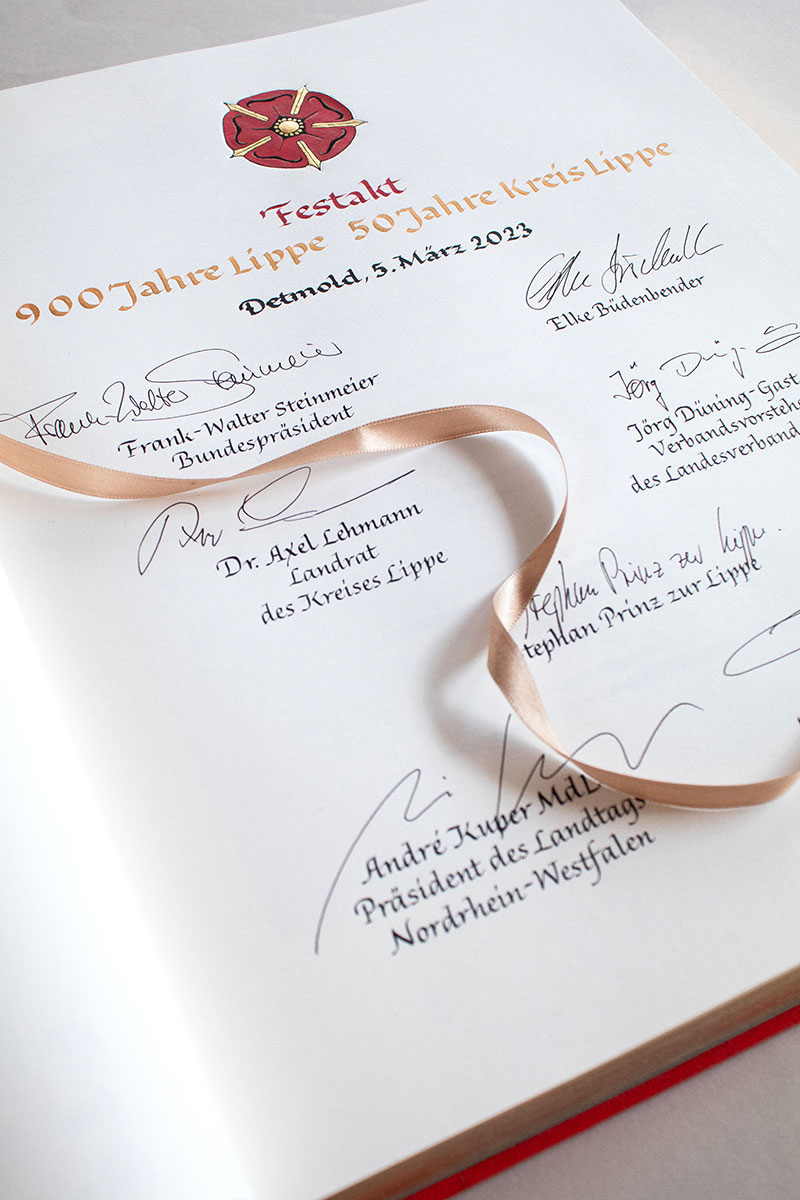 Festakt
900 Jahre Lippe 50 Jahre Kreis Lippe
Detmold, 5. März 2023
Elke Büdenbender
Elke Büdenbender
Frank-Walter Steinmeier
Frank-Walter Steinmeier
Bundespräsident
Jörg Düning-Gast
Jörg Düning-Gast
Verbandsvorsteh
des Landesverband
Dr. Axel Lehmann
Landrat
des Kreises Lippe
Stephan Prinz zur Lippe
tephan Prinz zur Lippe
André Kuper MdL
Präsident des Landtags
Nordrhein-Westfalen